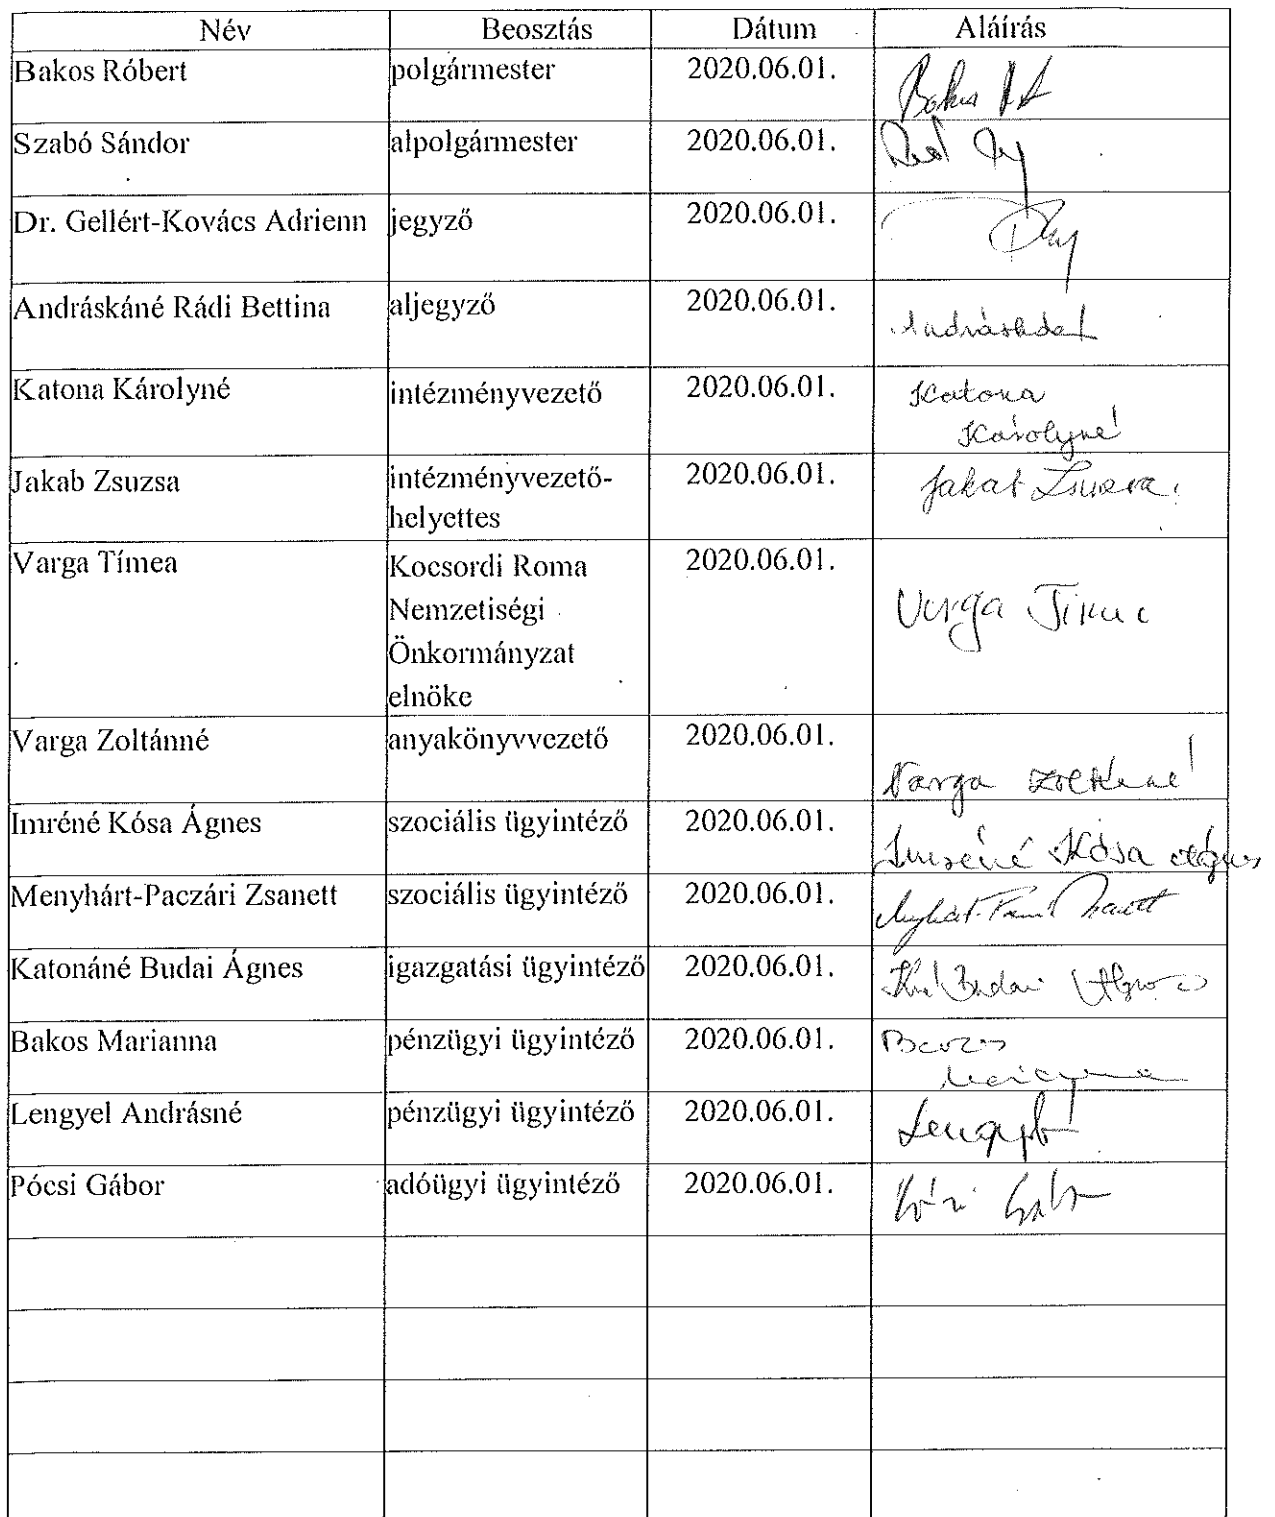 Név Beosztás Dátum Aláírás
Bakos Róbert polgármester 2020.06.01. Bakos
Szabó Sándor alpolgármester 2020.06.01.
Dr. Gellért-Kovács Adrienn jegyző 2020.06.01.
Andráskáné Rádi Bettina aljegyző 2020.06.01.
Katona Károlyné intézményvezető 2020.06.01. Katona
Károlyné
Jakab Zsuzsa intézményvezető- 2020.06.01. Jakab Zsuzsa
helyettes
Varga Tímea Kocsordi Roma 2020.06.01.
Nemzetiségi Varga Tímea
Önkormányzat
elnöke
Varga Zoltánné anyakönyvvezető 2020.06.01.
Varga Zoltánné
Imréné Kósa Ágnes szociális ügyintéző 2020.06.01. Imréné Kósa Ágnes
Menyhárt-Paczári Zsanett szociális ügyintéző 2020.06.01.
Katonáné Budai Ágnes igazgatási ügyintéző 2020.06.01. Kné Budai Ágnes
Bakos Marianna pénzügyi ügyintéző 2020.06.01. Bakos
Marianna
Lengyel Andrásné pénzügyi ügyintéző 2020.06.01.
Pócsi Gábor adóügyi ügyintéző 2020.06.01. Pócsi Gábor